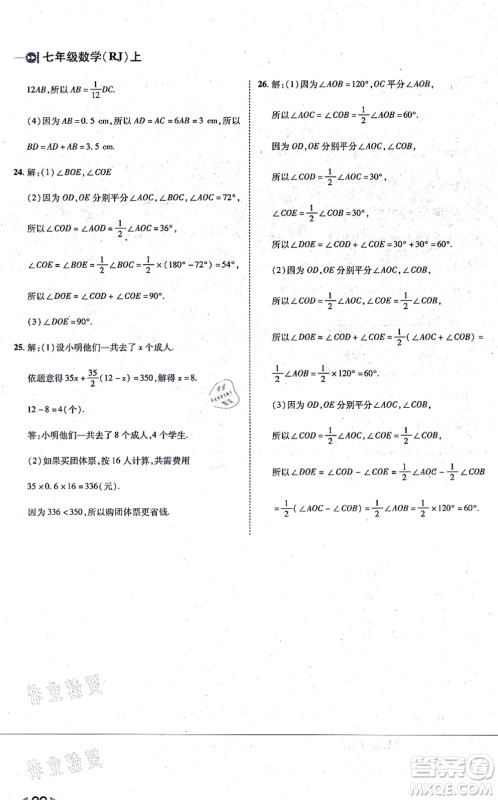 七年级数学(RJ)上
12AB,所以 AB = 1/12 DC.
(4)因为 AB = 0.5 cm,所以 AD = AC = 6AB = 3 cm,所以
BD = AD + AB = 3.5 cm.
24. 解:(1)∠BOE,∠COE
(2)因为 OD,OE 分别平分∠AOC,∠BOC,∠AOC = 72°,
所以∠COD = ∠AOD = 1/2∠AOC = 36°,
∠COE = ∠BOE = 1/2∠BOC = 1/2 × (180° − 72°) = 54°,
所以∠DOE = ∠COD + ∠COE = 90°.
(3)∠DOE = 90°.
25. 解:(1)设小明他们一共去了 x 个成人.
依题意得 35x + 35/2(12 − x) = 350,解得 x = 8.
12 − 8 = 4(个).
答:小明他们一共去了 8 个成人,4 个学生.
(2)如果买团体票,按 16 人计算,共需费用
35 × 0.6 × 16 = 336(元).
因为 336 < 350,所以购团体票更省钱.
26. 解:(1)因为∠AOB = 120°,OC 平分∠AOB,
所以∠AOC = ∠COB = 1/2∠AOB = 60°.
因为 OD,OE 分别平分∠AOC,∠COB,
所以∠COD = 1/2∠AOC = 30°,
∠COE = 1/2∠COB = 30°,
所以∠DOE = ∠COD + ∠COE = 30° + 30° = 60°.
(2)因为 OD,OE 分别平分∠AOC,∠COB,
所以∠COD = 1/2∠AOC,∠COE = 1/2∠COB,
所以∠DOE = ∠COD + ∠COE = 1/2∠AOC + 1/2∠COB =
1/2∠AOB = 1/2 × 120° = 60°.
(3)因为 OD,OE 分别平分∠AOC,∠COB,
所以∠COD = 1/2∠AOC,∠COE = 1/2∠COB,
所以∠DOE = ∠COD − ∠COE = 1/2∠AOC − 1/2∠COB =
1/2(∠AOC − ∠COB) = 1/2∠AOB = 1/2 × 120° = 60°.
答案圈
MXQE.COM